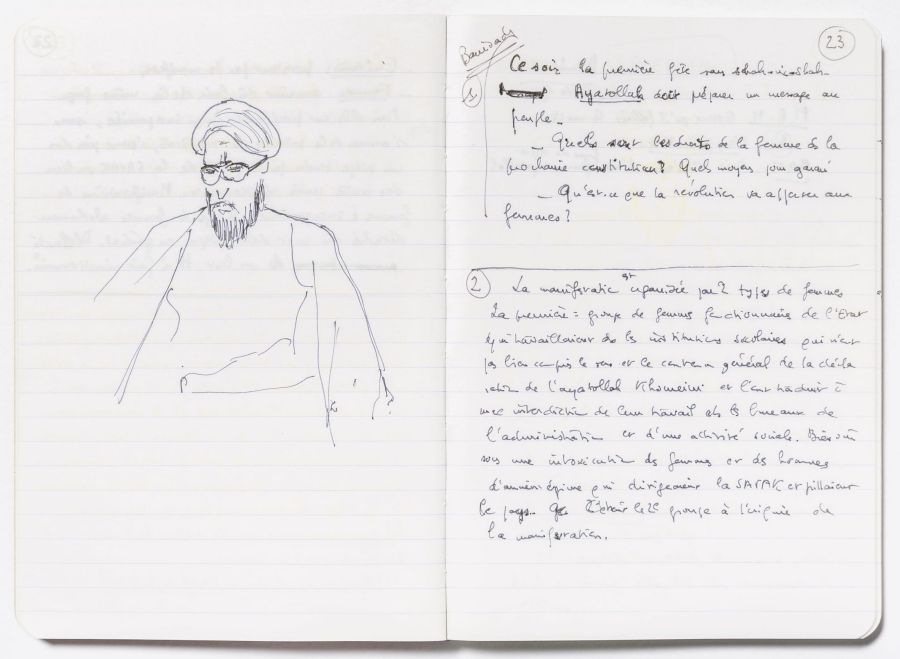 22
23
Banisadr
1)
Ce soir la première fête sans schah
Ayatollah doit préparer un message au
peuple.
_ Quels sont les droits de la femme ds la
prochaine constitution? Quels moyens pour garanti
_ Qu'est-ce que la révolution va apporter aux
femmes?
2
La manifestatio est organisée par 2 types de femmes
La première = groupe de femmes fonctionnaires de l'Etat
qui travaillaient ds les institutions scolaires qui n'ont
pas bien compris le sens et le contenu général de la décla
ration de l'ayatollah Khomeini et l'ont traduit à
une interdiction de leur travail ds les bureaux de
l'administration et d'une activité sociale. Bien sûr
sous une intoxication des femmes et des hommes
d'ancien régime qui dirigeaient la SAVAK et pillaient
le pays. C'était le 2e groupe à l'origine de
la manifestation.